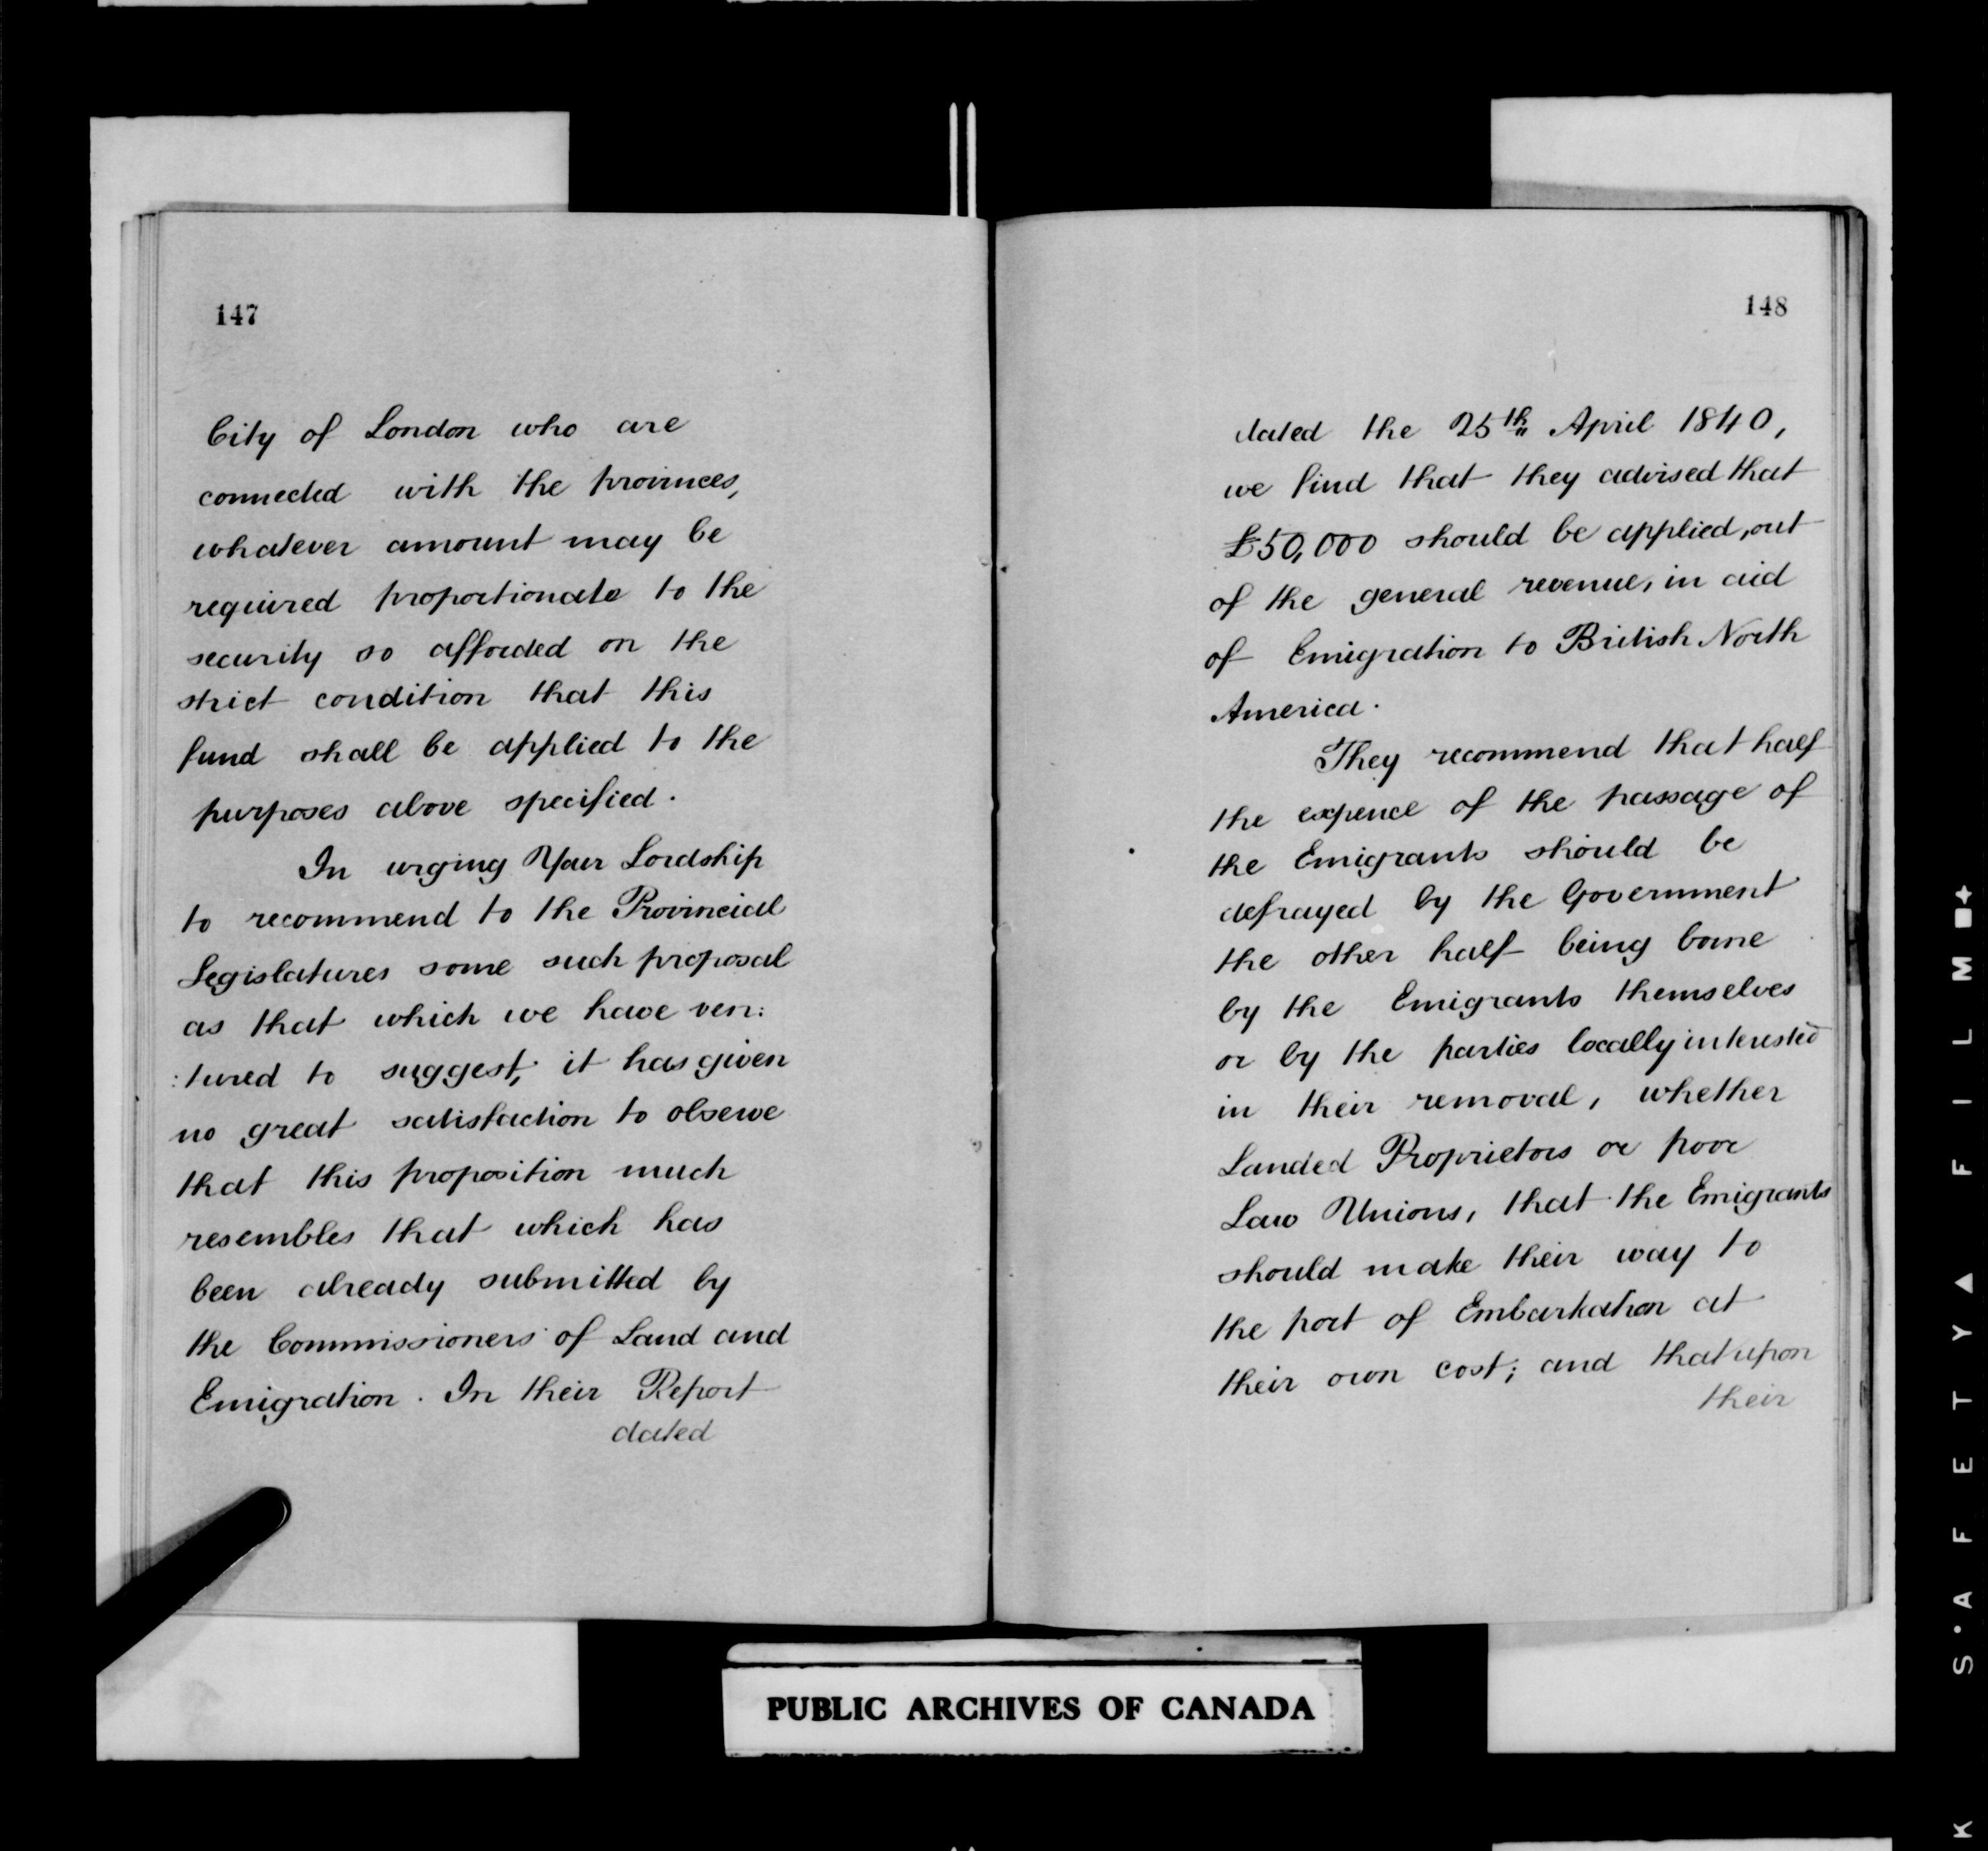 147
City of London who are
connected with the provinces,
whatever amount may be
required proportionate to the
security so afforded on the
strict condition that this
fund shall be applied to the
purposes above specified.
In urging Your Lordship
to recommend to the Provincial
Legislatures some such proposal
as that which we have ven:
:tured to suggest, it has given
no great satisfaction to observe
that this proposition much
resembles that which has
been already submitted by
the Commissioners of Land and
Emigration. In their Report
dated
148
dated the 25th April 1840,
we find that they advised that
£50,000 should be applied, out
of the general revenue, in aid
of Emigration to British North
America.
They recommend that half
the expence of the passage of
the Emigrants should be
defrayed by the Government
the other half being borne
by the Emigrants themselves
or by the parties locally interested
in their removal, whether
Landed Proprietors or poor
Law Unions, that the Emigrants
should make their way to
the port of Embarkation at
their own cost; and that upon
their
PUBLIC ARCHIVES OF CANADA
K S·A F E T Y ▲ F I L M ■+